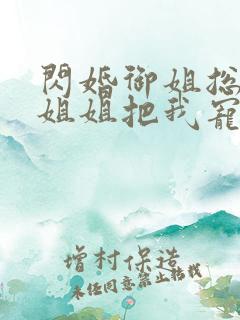 閃婚御姐总
姐姐把我寵
增村保造
未经同意禁止转载